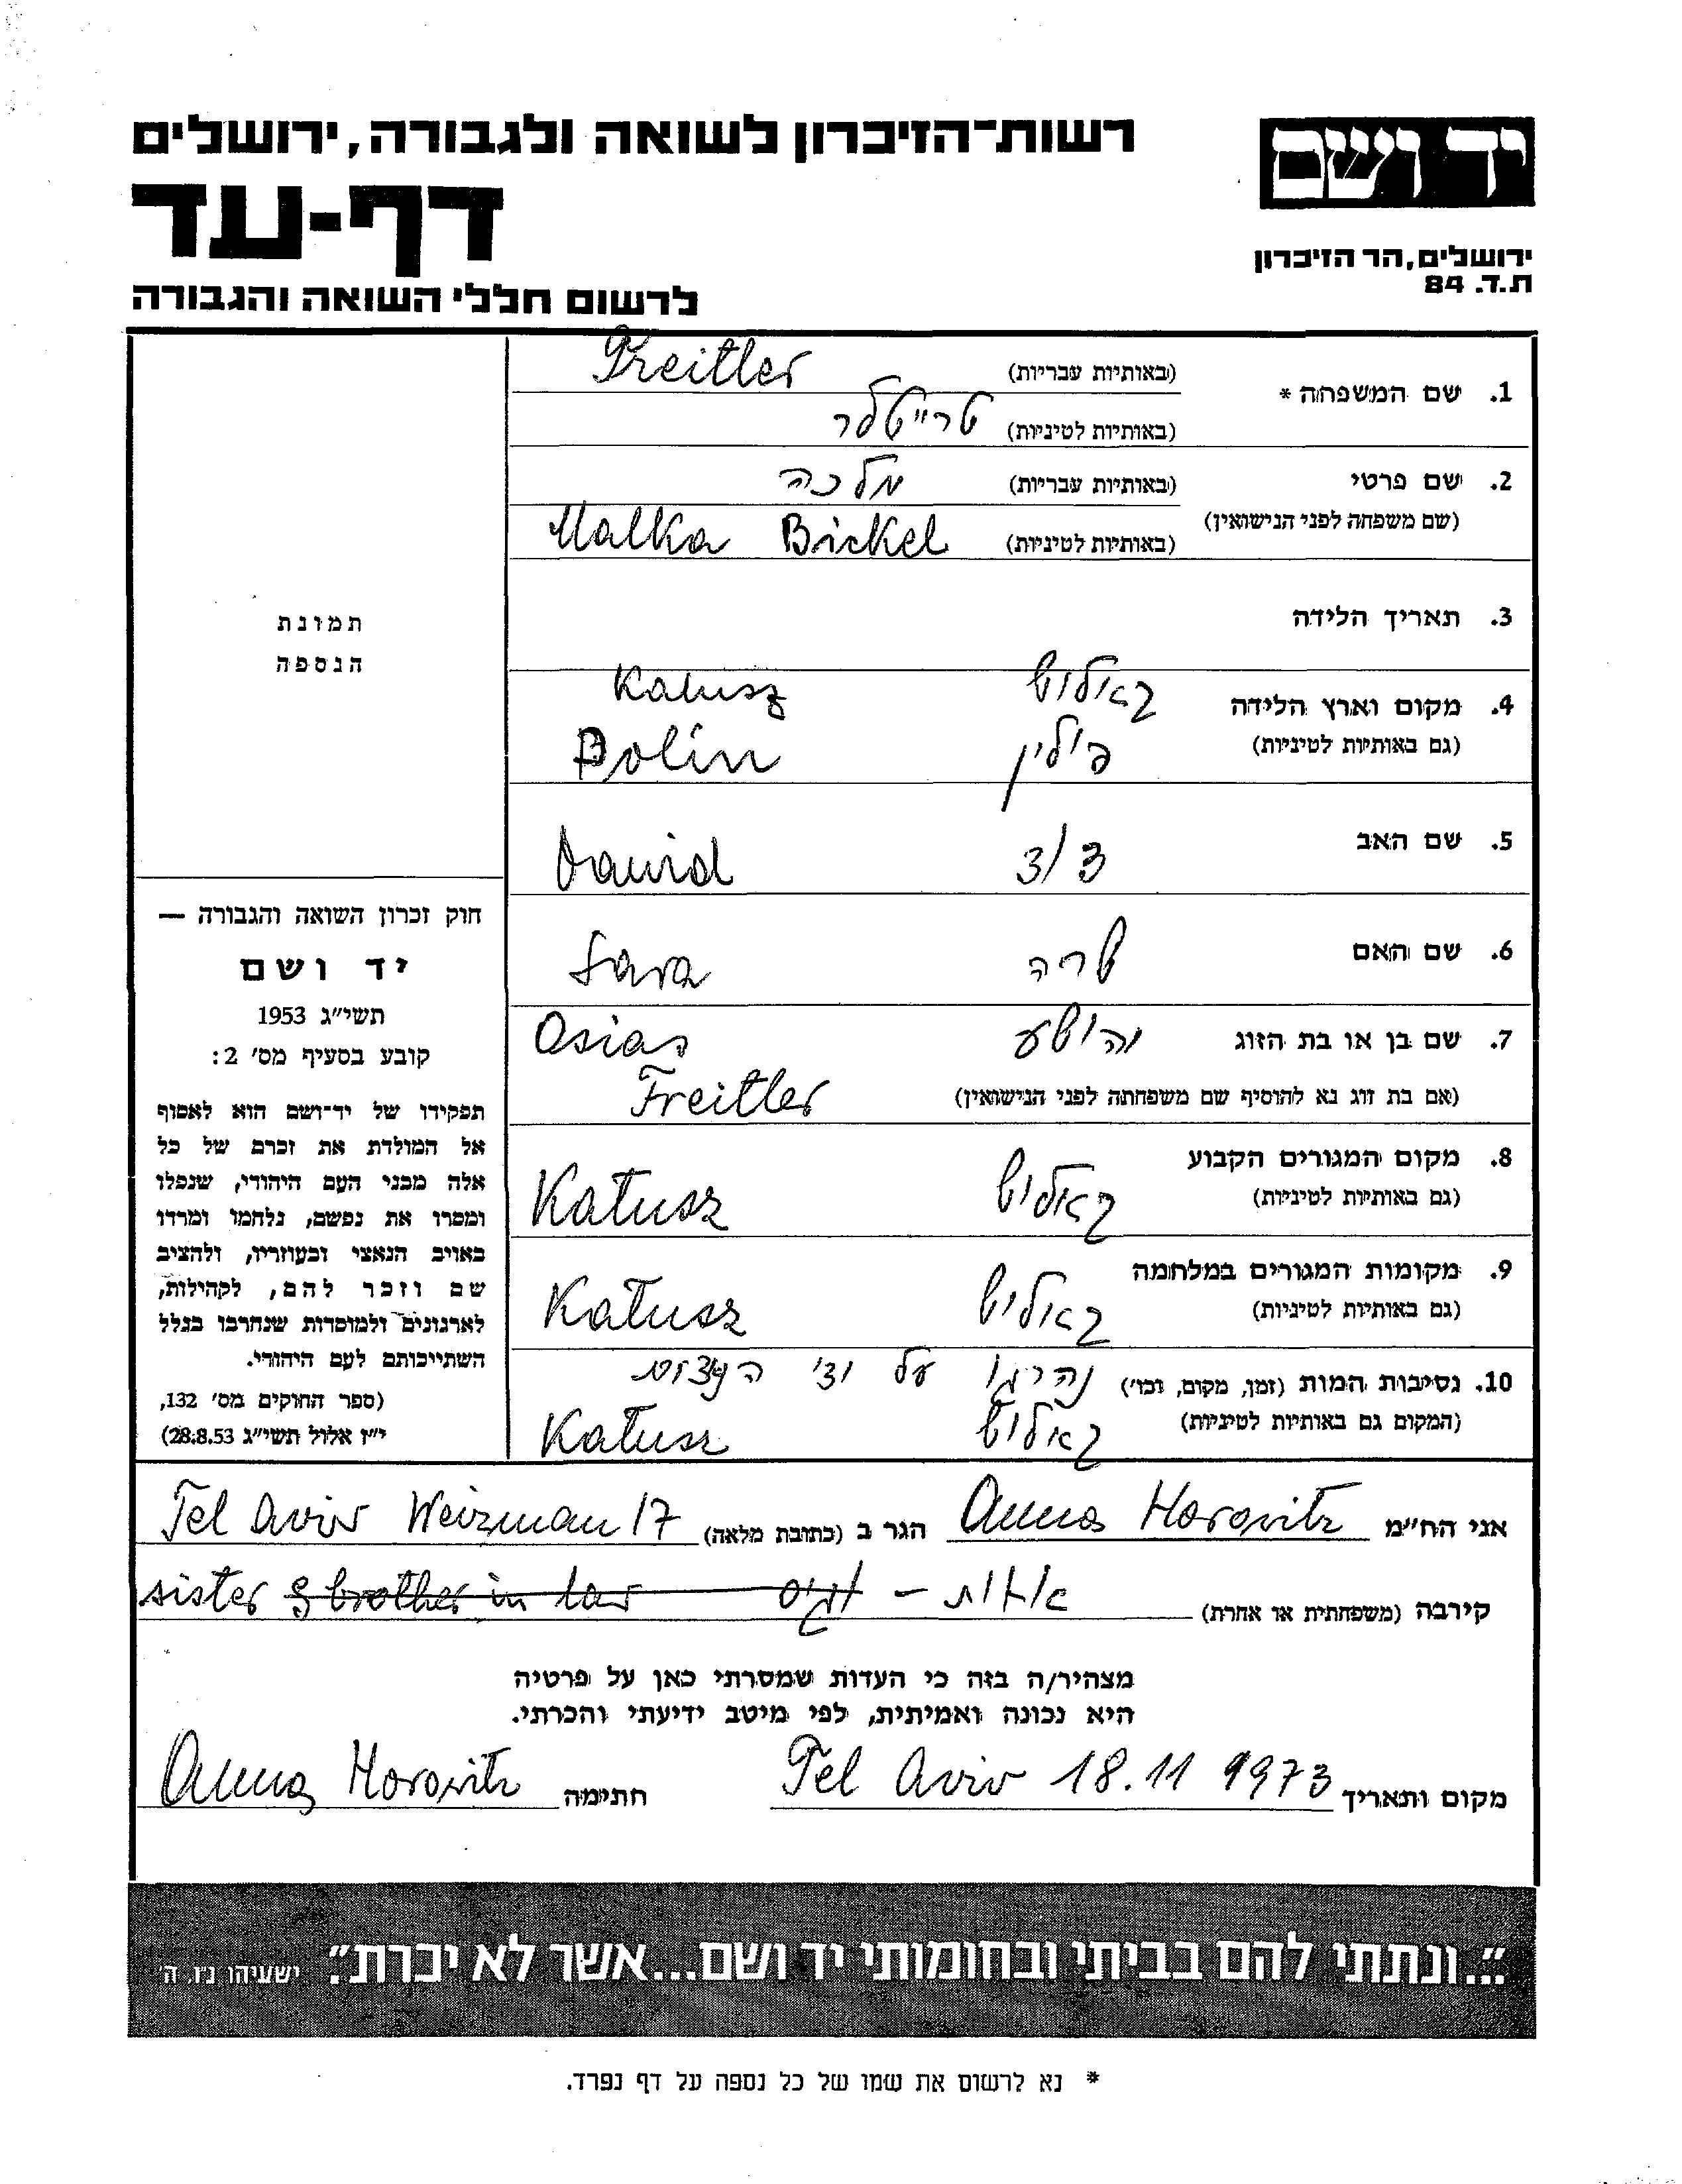 רשות־הזיכרון לשואה ולגבורה, ירושלים
יד ושם
דף-עד
ירושלים, הר הזיכרון
ת.ד. 84
לרשום חללי השואה והגבורה
1. שם המשפחה * (באותיות עבריות) Treitler
(באותיות לטיניות) טרייטלר
2. שם פרטי (באותיות עבריות) מלכה
(שם משפחה לפני הנישואין) (באותיות לטיניות) Malka Bickel
3. תאריך הלידה
תמונת
הנספה
4. מקום וארץ הלידה קאלוש Kalusz
(גם באותיות לטיניות) פולין Polin
5. שם האב דוד Dawid
6. שם האם שרה Sara
7. שם בן או בת הזוג יהושע Osias
(אם בת זוג נא להוסיף שם משפחתה לפני הנישואין) Treitler
8. מקום המגורים הקבוע קאלוש
(גם באותיות לטיניות) Kałusz
9. מקומות המגורים במלחמה קאלוש
(גם באותיות לטיניות) Kałusz
10. נסיבות המות (זמן, מקום, וכו׳) נהרגו על ידי
(המקום גם באותיות לטיניות) קאלוש Kałusz
חוק זכרון השואה והגבורה —
יד ושם
תשי״ג 1953
קובע בסעיף מס׳ 2:
תפקידו של יד־ושם הוא לאסוף
אל המולדת את זכרם של כל
אלה מבני העם היהודי, שנפלו
ומסרו את נפשם, נלחמו ומרדו
באויב הנאצי ובעוזריו, ולהציב
שם וזכר להם, לקהילות,
לארגונים ולמוסדות שנחרבו בגלל
השתייכותם לעם היהודי.
(ספר החוקים מס׳ 132,
י״ז אלול תשי״ג 28.8.53)
אני הח״מ Anna Horowitz הגר ב (כתובת מלאה) Tel Aviv Weizman 17
קירבה (משפחתית או אחרת) אחות - וגיס sister & brother in law
מצהיר/ה בזה כי העדות שמסרתי כאן על פרטיה
היא נכונה ואמיתית, לפי מיטב ידיעתי והכרתי.
מקום ותאריך Tel Aviv 18.11 1973 חתימה Anna Horowitz
״...ונתתי להם בביתי ובחומותי יד ושם...אשר לא יכרת״. ישעיהו נ״ו, ה׳
* נא לרשום את שמו של כל נספה על דף נפרד.